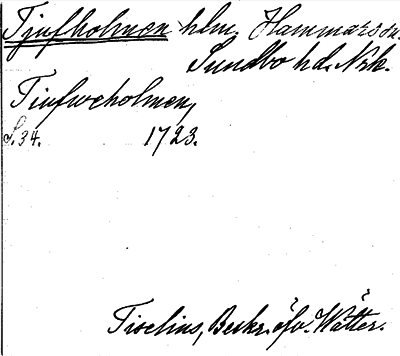 Tjufholmen hlm. Hammars sn.
Sundbo hd. Nrk.
Tiufweholmen,
S. 34. 1723.
Tiselius, Beskr. öfv. Wätter.